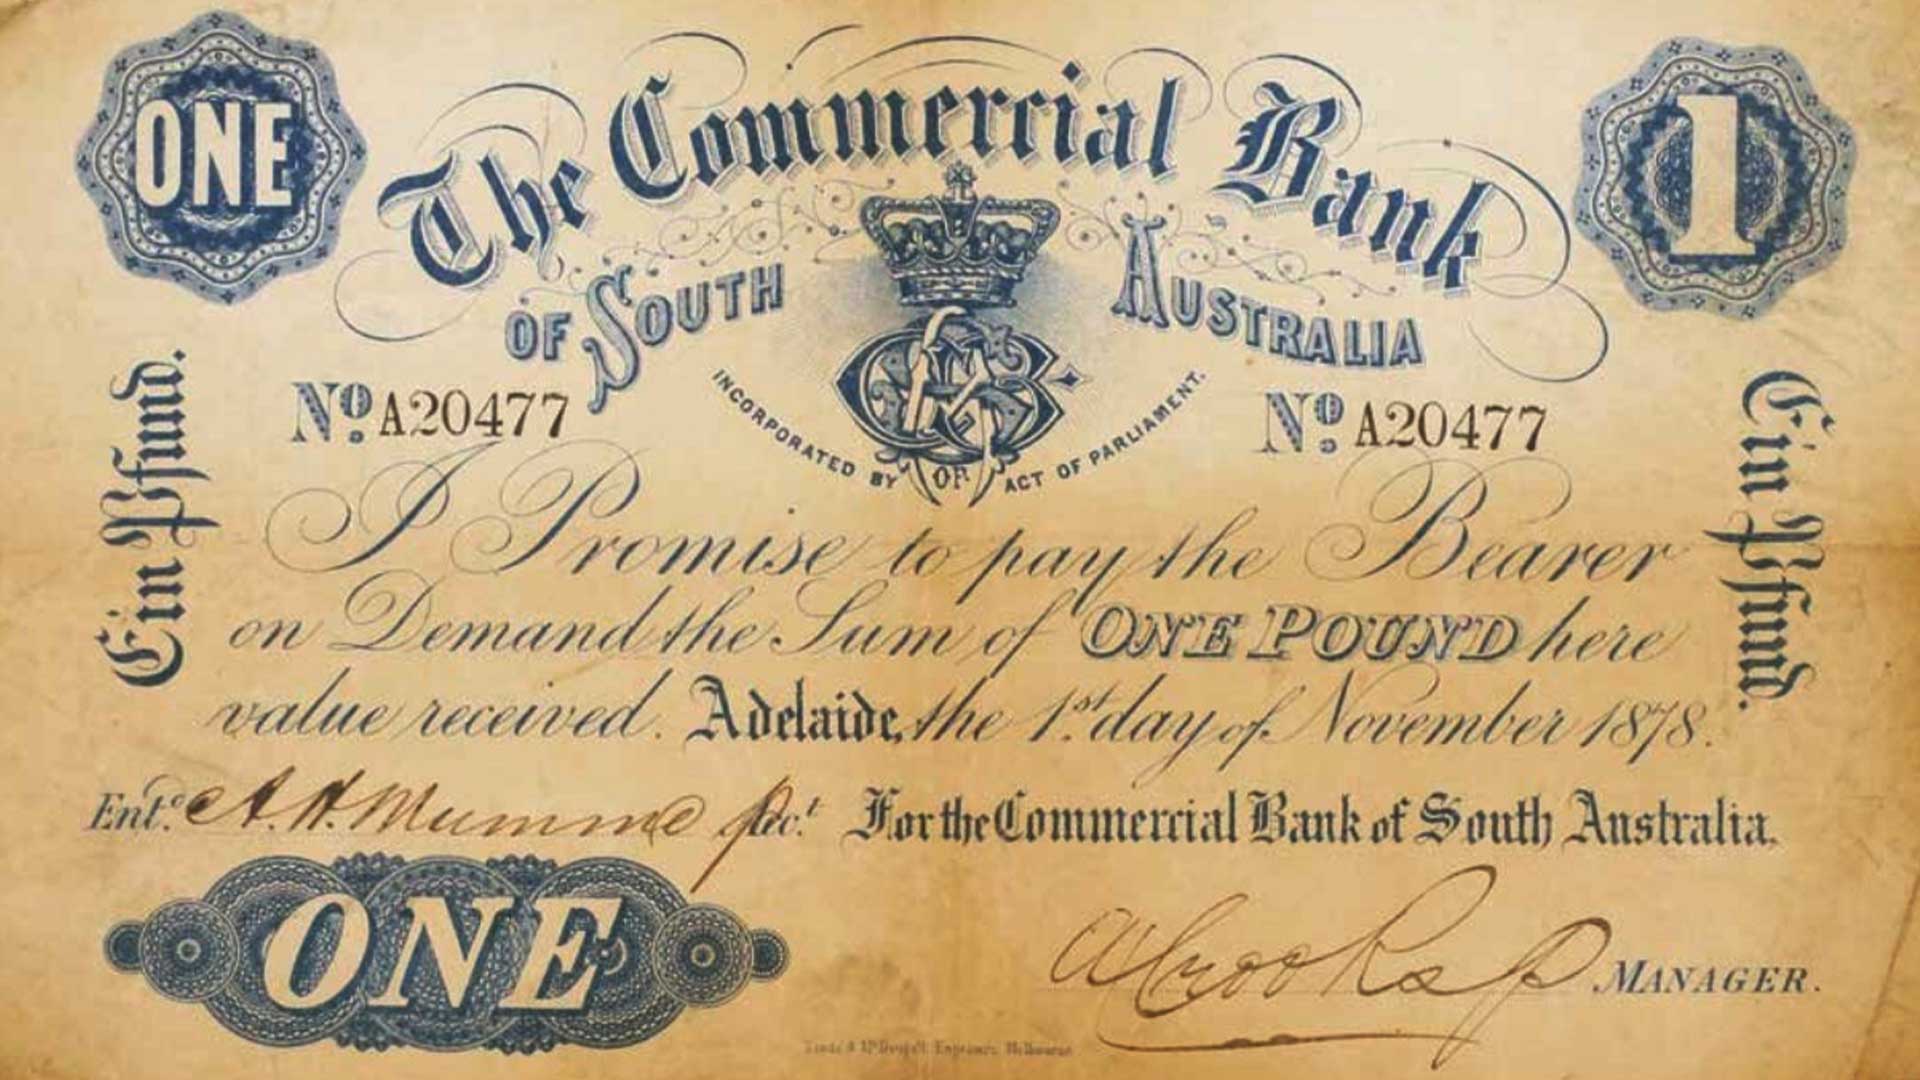 ONE
1
The Commercial Bank
OF SOUTH AUSTRALIA
INCORPORATED BY ACT OF PARLIAMENT.
Nº. A20477
Nº. A20477
Ein Pfund.
Ein Pfund.
I Promise to pay the Bearer
on Demand the Sum of ONE POUND here
value received. Adelaide, the 1st. day of November 1878.
Entd. A. H. Mumme Acct. For the Commercial Bank of South Australia.
ONE
A Crooks MANAGER.
Engravers, Melbourne